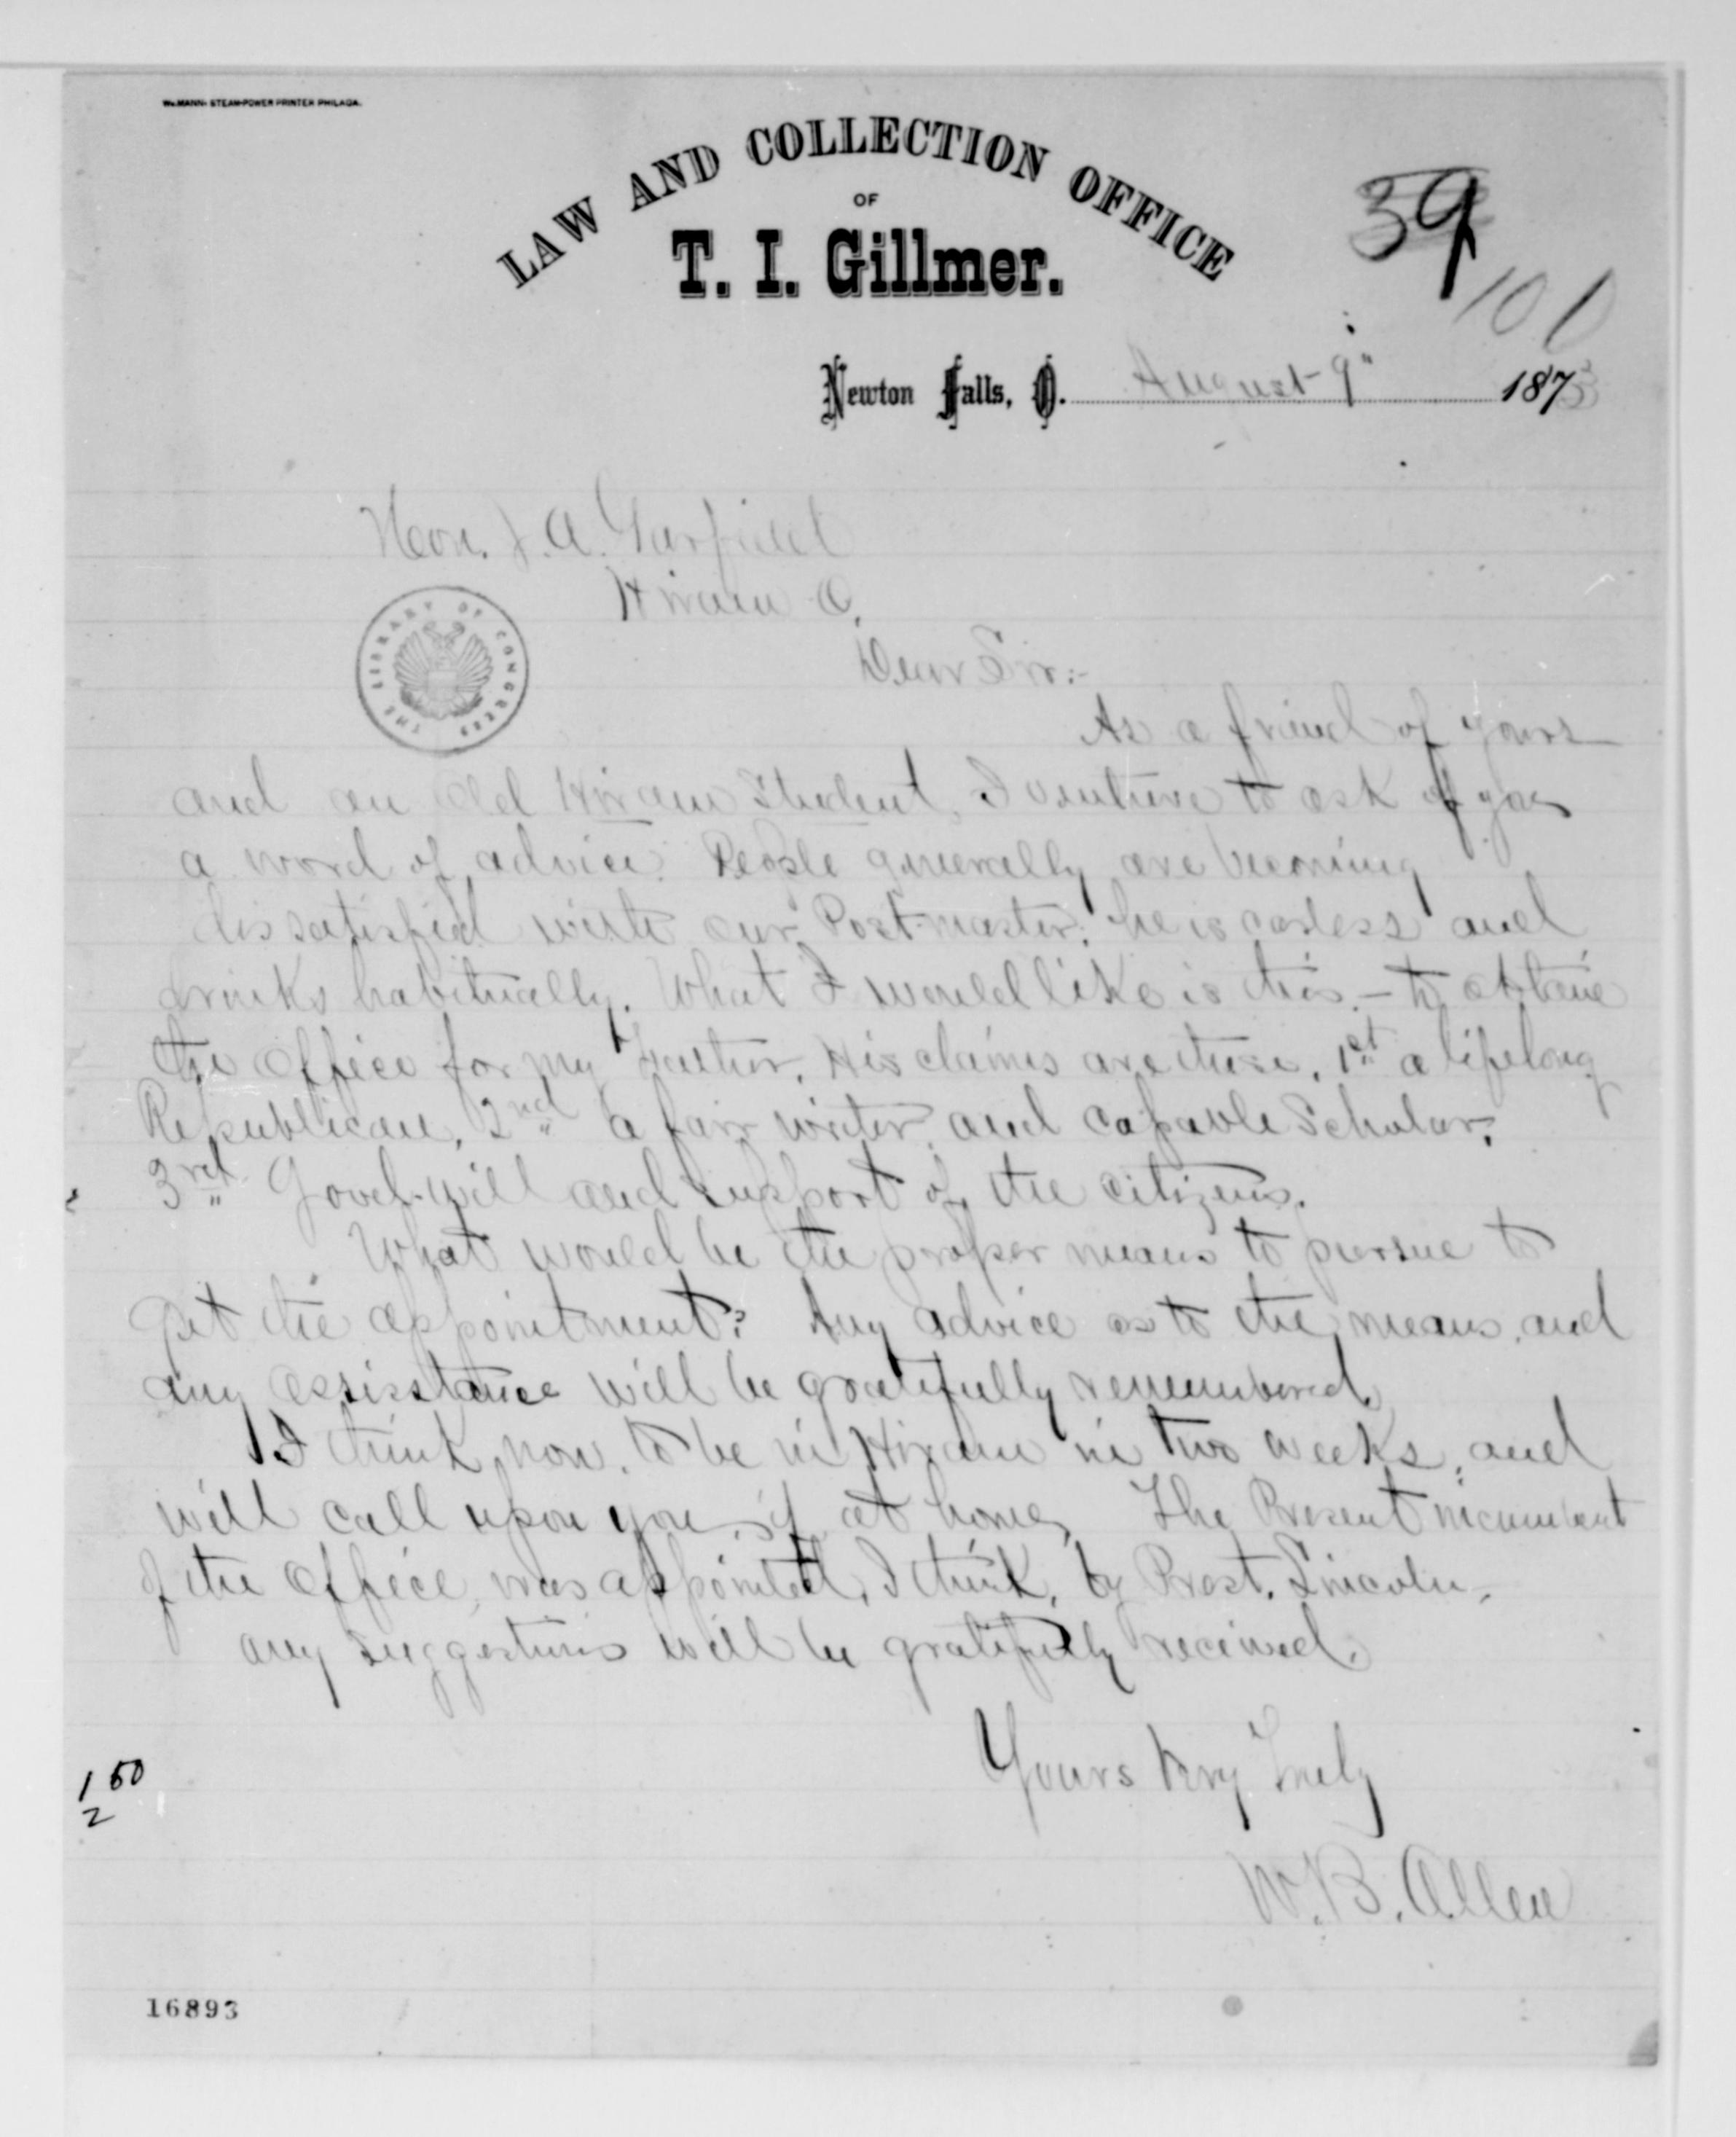 Wm. MANN, STEAM-POWER PRINTER PHILADA.
LAW AND COLLECTION OFFICE
OF
T. I. Gillmer.
39
101
Newton Falls, O. August 9" 1873
Hon. J. A. Garfield
Hiram O.
THE LIBRARY OF CONGRESS
Dear Sir:-
As a friend of yours
and an Old Hiram Student, I venture to ask of you
a word of advice. People generally are becoming
dissatisfied with our Post-master. he is carless and
drinks habitually. What I would like is this. - to obtain
the Office for my Father. His claims are these. 1st a lifelong
Republican, 2nd a fair writer, and capable Scholar.
3rd Good-will and support of the citizens.
What would be the proper means to pursue to
get the appointment? Any advice as to the means, and
any assisstance will be gratefully remembered.
I think, now, to be in Hiram in two weeks, and
will call upon you, if at home. The Present incumbent
of the Office, was appointed, I think, by Prest. Lincoln.
any suggestions will be gratefully received.
Yours Very Truly
W. B. Allen
1 50
2
16893